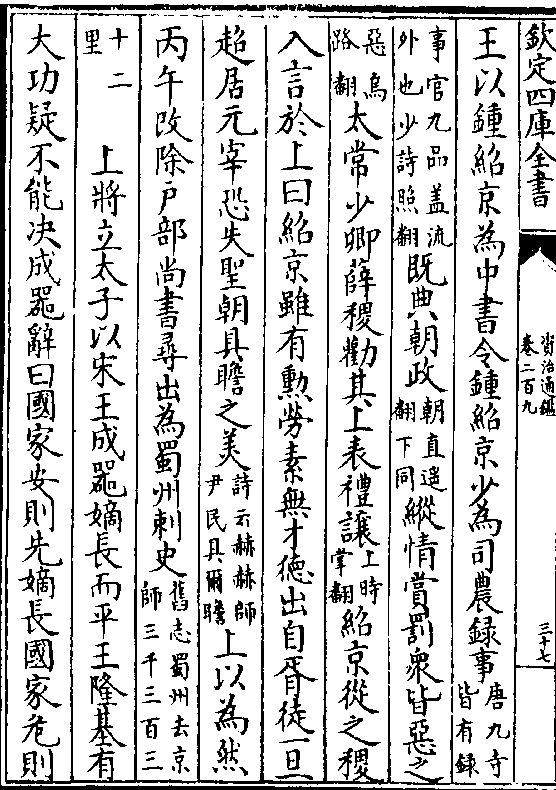 欽定四庫全書
資治通鑑
卷二百九
三十七
王以鍾紹京為中書令鍾紹京少為司農録事唐九寺皆有録
事官九品蓋流外也少詩照翻既典朝政朝直遥翻下同縱情賞罰衆皆惡之
惡烏路翻太常少卿薛稷勸其上表禮讓上時掌翻紹京從之稷
入言於上曰紹京雖有勲勞素無才徳出自胥徒一旦
超居元宰恐失聖朝具瞻之美詩云赫赫師尹民具爾瞻上以為然
丙午改除户部尚書尋出為蜀州刺史舊志蜀州去京師三千三百三
十二里　上將立太子以宋王成器嫡長而平王隆基有
大功疑不能决成器辭曰國家安則先嫡長國家危則